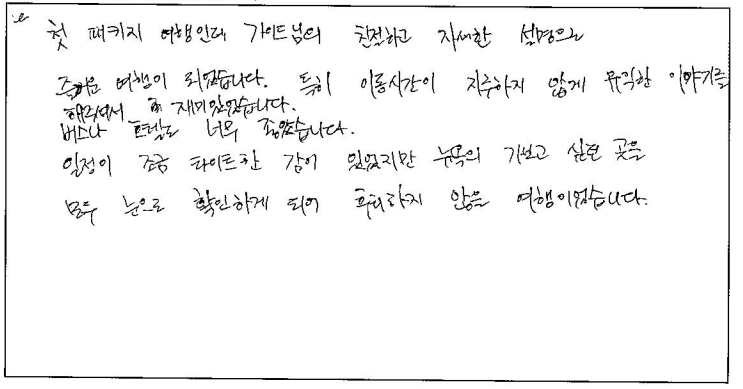 첫 패키지 여행인데 가이드님의 친절하고 자세한 설명으로
즐거운 여행이 되었습니다. 특히 이동시간이 지루하지 않게 유익한 이야기를
해주셔서 재미있었습니다.
버스나 호텔도 너무 좋았습니다.
일정이 조금 타이트한 감이 있었지만 뉴욕의 가보고 싶던 곳을
모두 눈으로 확인하게 되어 후회하지 않을 여행이었습니다.